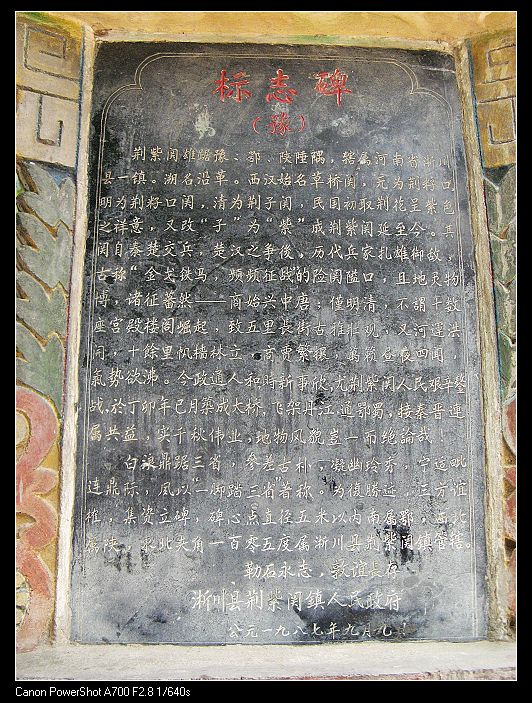 标志碑
（豫）
荆紫关雄踞豫、鄂、陕陲隅，辖属河南省淅川
县一镇。溯名沿革。西汉始名草桥关，元为荆籽口，
明为荆籽口关，清为荆子关，民国初取荆花呈紫色
之祥意，又改“子”为“紫”成荆紫关延至今。其
关自秦楚交兵，楚汉之争後，历代兵家扎雄御敌，
古称“金戈铁马，频频征战”的险关隘口，且地灵物
博，诸征蕃然——商始兴中唐；仅明清，不谓十数
座宫殿楼阁崛起，致五里長街古雅壮观，又河运洪
同，十餘里帆樯林立，商贾繁攘，
氣势欲沸。今政通人和時新事欣，尤荆紫关人民艰辛鏊
战，於丁卯年巳月筑成大桥，飞架丹江，通鄂蜀，接秦晋連
属共益，实千秋伟业，地物风貌豈一而绝論哉！
白浪鼎踞三省，參差古朴，凝幽玲秀，宁迩毗
連鼎际，夙以“一脚踏三省”著称。为復勝迹，三方谊
榷，集资立碑，碑心点直径五米以内南属鄂，西北
属陕，東北夹角一百零五度属淅川县荆紫関镇管辖。
勒石永志，敦谊長存
淅川县荆紫関鎮人民政府
公元一九八七年九月九
Canon PowerShot A700 F2.8 1/640s